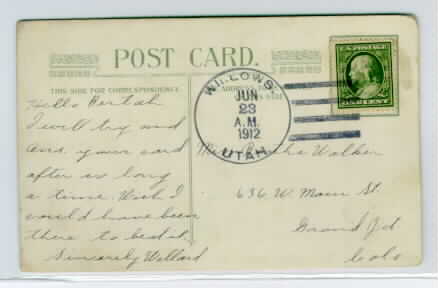 POST CARD.
THIS SIDE FOR CORRESPONDENCE.
U.S. POSTAGE
ONE CENT
WILLOWS
JUN
23
A.M.
1912
UTAH
Hello Bertah
I will try and
ans. your card
after so long
a time. Wish I
could have been
there to
Sincerely Willard
Miss Bertha Walker
636 W. Main St.
Grand Jct
Colo